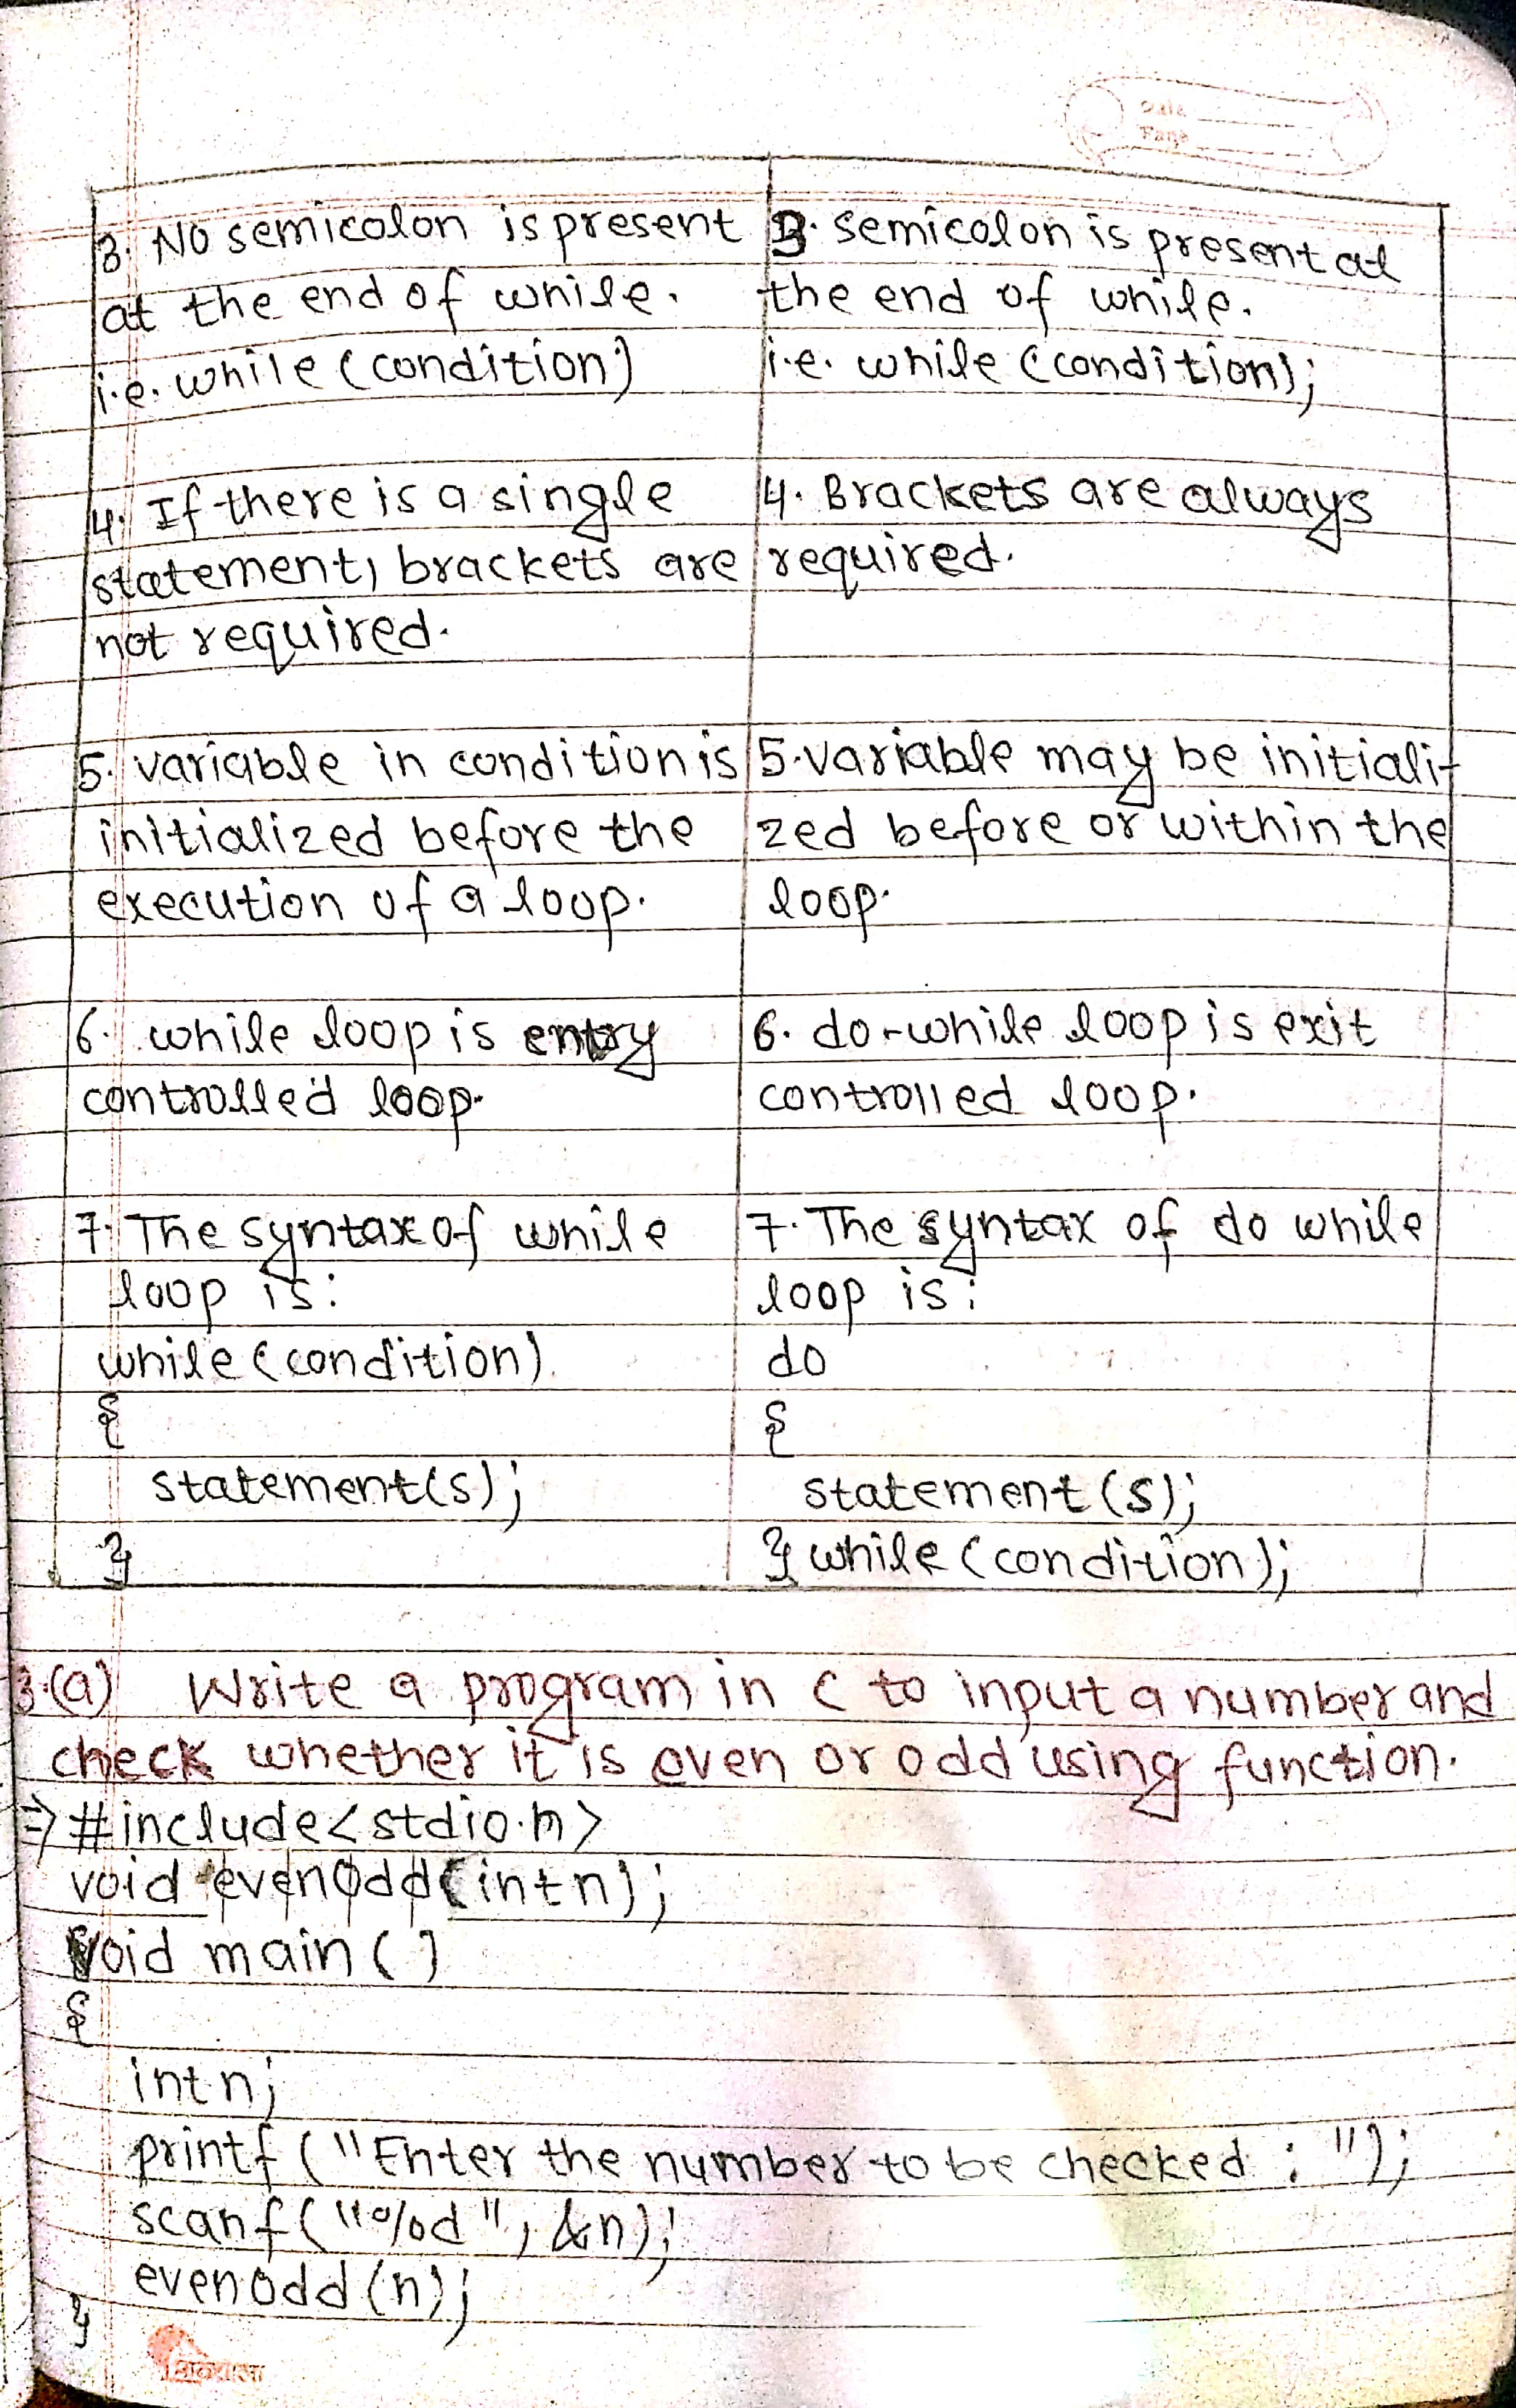 Date
Page
3. No semicolon is present
at the end of while.
i.e. while (condition)
3. Semicolon is present at
the end of while.
i.e. while (condition);
4. If there is a single
statement, brackets are
not required.
4. Brackets are always
required.
5. variable in condition is
initialized before the
execution of a loop.
5. variable may be initiali-
zed before or within the
loop.
6. while loop is entry
controlled loop.
6. do-while loop is exit
controlled loop.
7. The syntax of while
loop is:
while (condition)
{
statement(s);
}
7. The syntax of do while
loop is:
do
{
statement(s);
} while (condition);
3.(a) Write a program in C to input a number and
check whether it is even or odd using function.
⇒ #include<stdio.h>
void evenodd(int n);
void main()
{
int n;
printf("Enter the number to be checked : ");
scanf("%d", &n);
evenodd(n);
}